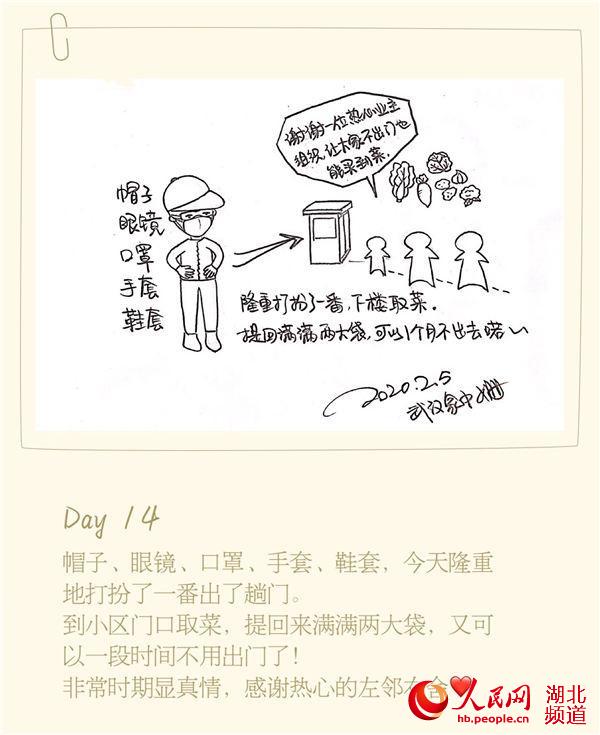 谢谢一位热心业主
组织让大家不出门也
能买到菜.
帽子
眼镜
口罩
手套
鞋套
隆重打扮了一番,下楼取菜.
提回满满两大袋,可以1个月不出去喏~
2020.2.5
武汉家中
Day 14
帽子、眼镜、口罩、手套、鞋套，今天隆重
地打扮了一番出了趟门。
到小区门口取菜，提回来满满两大袋，又可
以一段时间不用出门了！
非常时期显真情，感谢热心的左邻右舍
人民网 湖北
hb.people.cn 频道